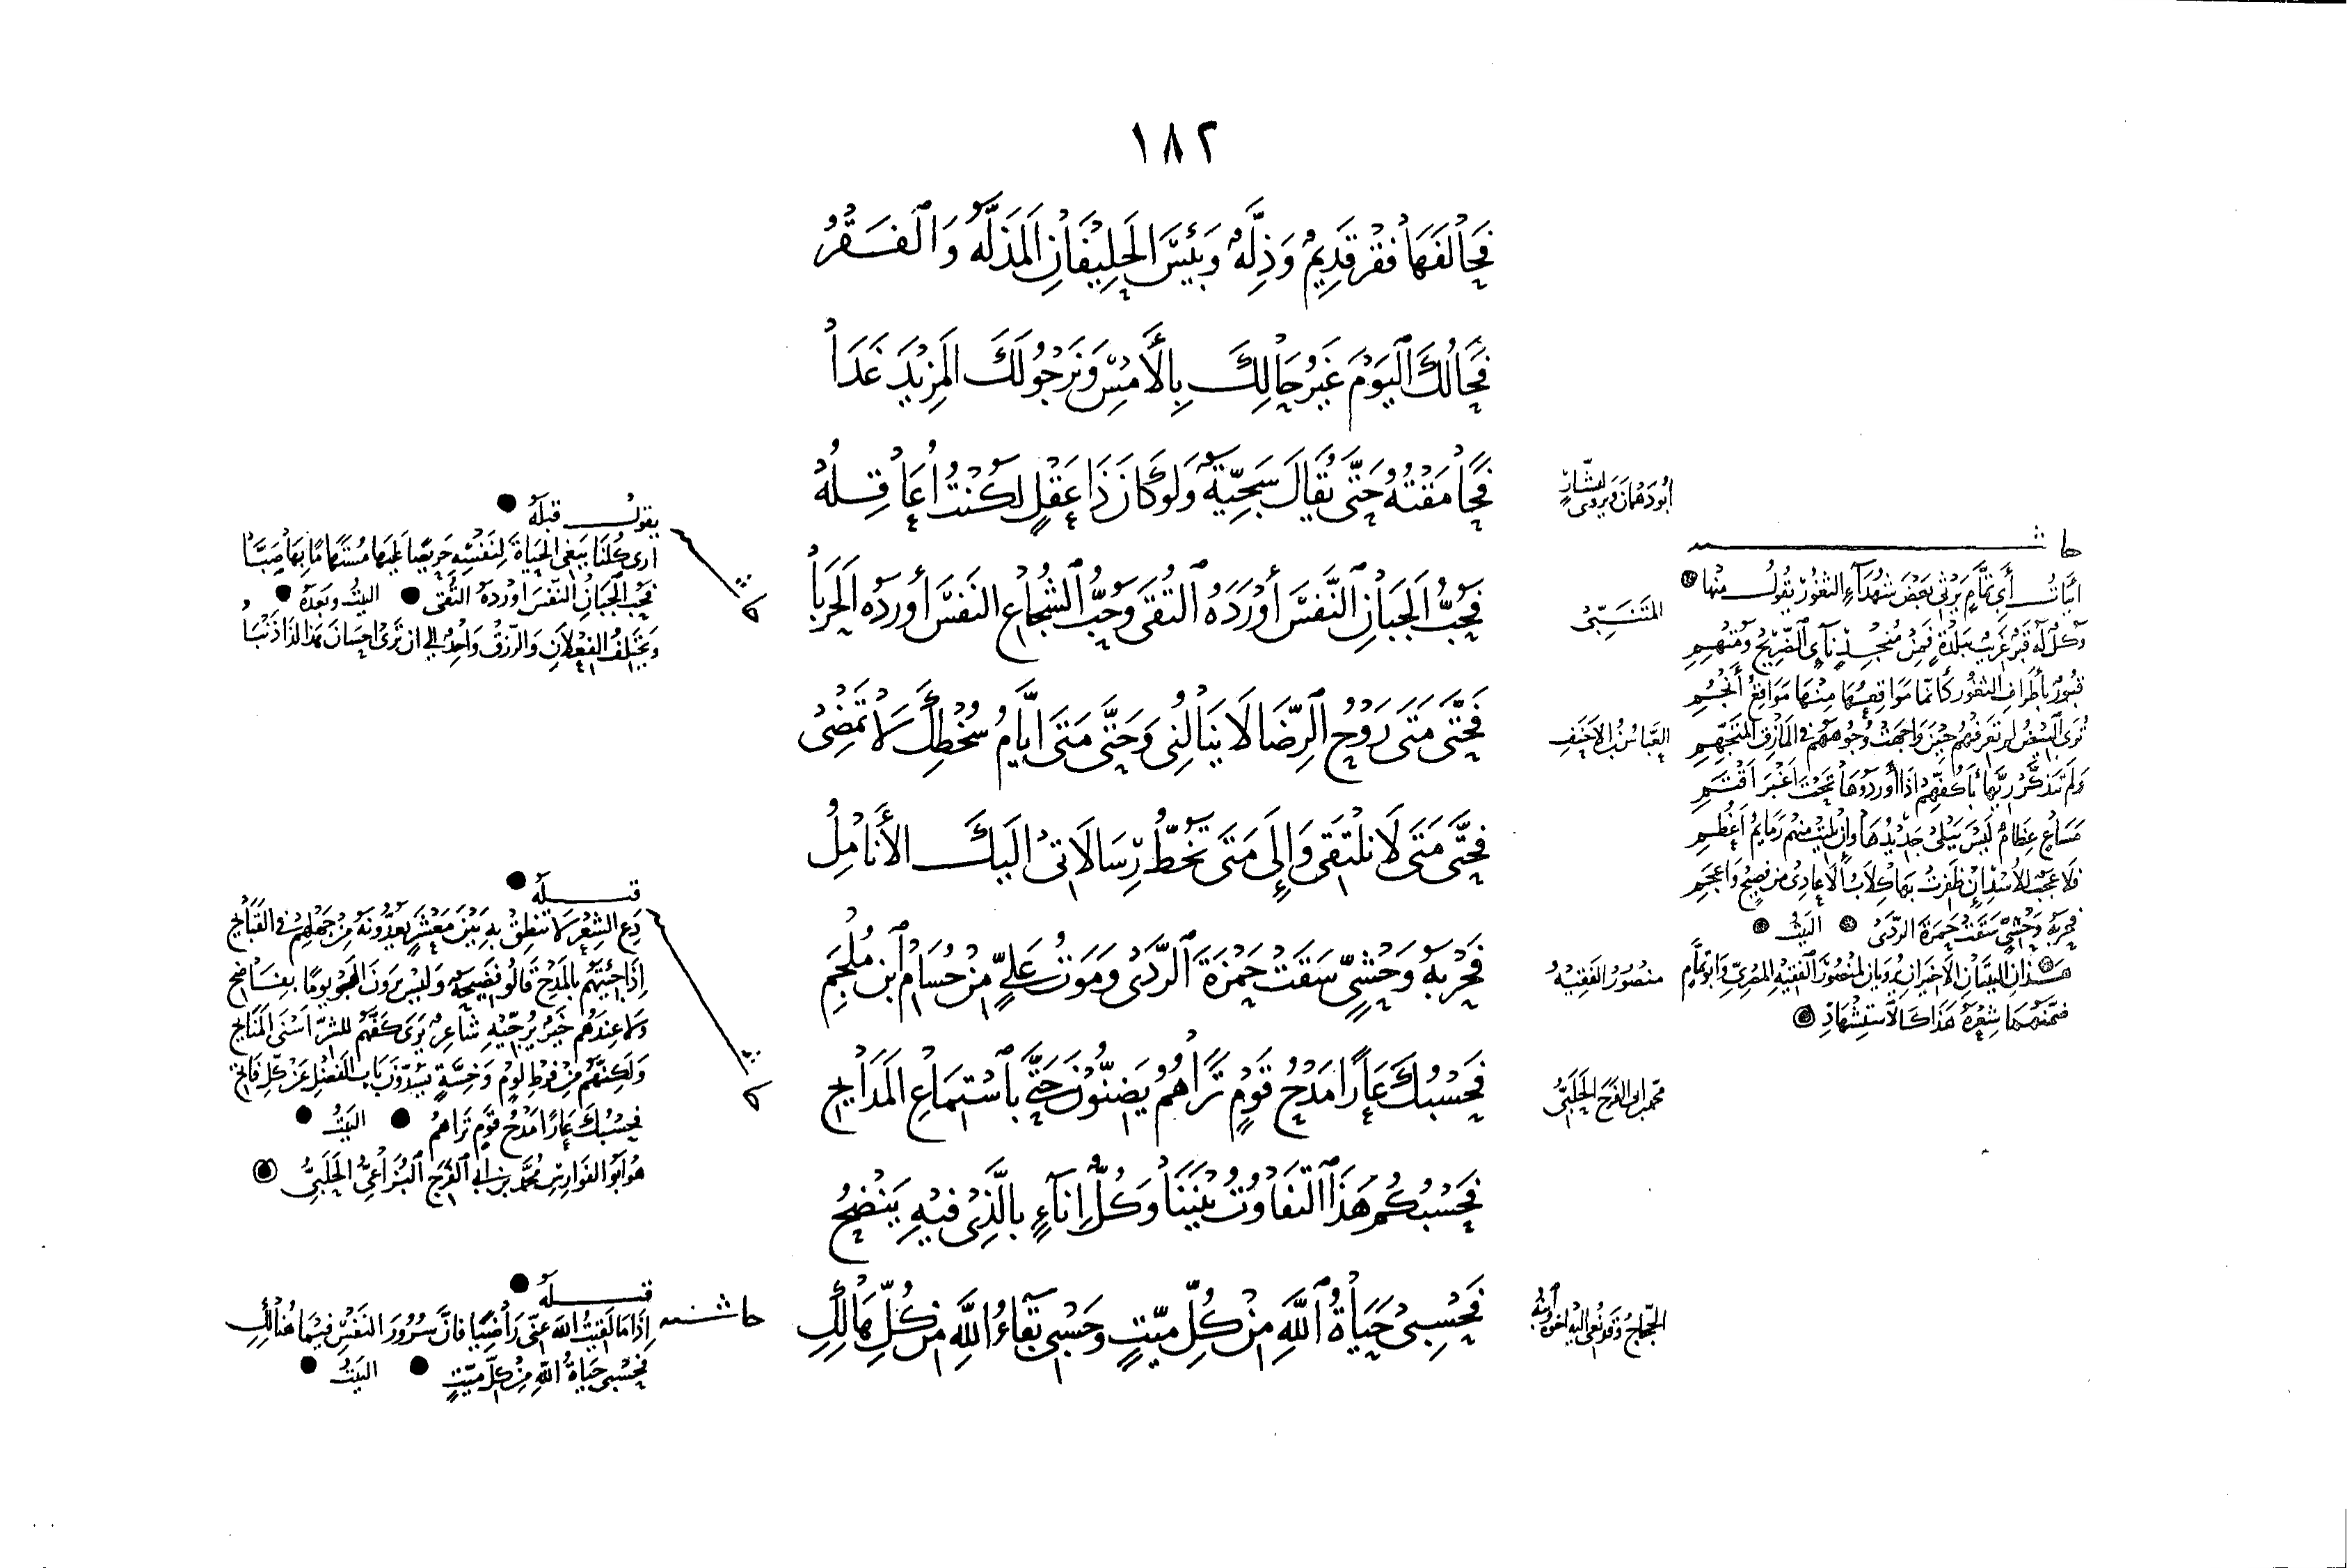 ١٨٢
فَحَالَفَهَا فَقْرٌ قَدِيمٌ وَذِلَّةٌ وَبِئْسَ الحَلِيْفَانِ المَذَلَّةُ وَالفَقْرُ
فَحَالُكَ اليَوْمَ غَيْرُ حَالِكَ بِالأَمْسِ وَنَرْجُو لَكَ المَزِيْدَ غَدَا
فَحَامَقْتُهُ حَتَّى يُقَالَ سَجِيَّةٌ وَلَوْ كَانَ ذَا عَقْلٍ لَكُنْتُ أُعَاقِلُهْ
أبُو دَهْمَانَ وَيُروَى لِبَشَّارٍ
فَحُبُّ الجَبَانِ النَّفْسَ أَوْرَدَهُ التُّقَى وَحُبُّ الشُّجَاعِ النَّفْسَ أَوْرَدَهُ الحَرْبَا
المُتَنَبِّيّ
فَحَتَّى مَتَى رَوْحُ الرِّضَا لَا يَنَالُنِي وَحَتَّى مَتَى أَيَّامُ سُخْطِكَ لَا تَمْضِي
العَبَّاسُ بْنُ الأَحْنَفِ
فَحَتَّى مَتَى لَا نَلْتَقِي وَإِلَى مَتَى تَخُطُّ رِسَالَاتِي إِلَيْكَ الأَنَامِلُ
فَحَرْبَةُ وَحْشِيٍّ سَقَتْ حَمْزَةَ الرَّدَى وَمَوْتُ عَلِيٍّ مِنْ حُسَامِ ابْنِ مُلْجَمِ
مَنْصُورٌ الفَقِيْهُ
فَحَسْبُكَ عَارًا مَدْحُ قَوْمٍ تَرَاهُمُ يَضِنُّونَ حَتَّى بِاسْتِمَاعِ المَدَائِحِ
مُحَمَّد بن أبي الفَرَجِ الحَلَبِيُّ
فَحَسْبُكُمُ هَذَا التَّفَاوُتُ بَيْنَنَا وَكُلُّ إِنَاءٍ بِالَّذِي فِيْهِ يَنْضَحُ
فَحَسْبِي حَيَاةُ اللَّهِ مِنْ كُلِّ مَيِّتٍ وَحَسْبِي بَقَاءُ اللَّهِ مِنْ كُلِّ هَالِكِ
الحَجَّاجُ وَقَدْ نُعِيَ إِلَيْهِ أَخُوهُ وَابْنُهُ
حاشـــية
أَبْيَاتُ أَبِي تَمَّامٍ يَرْثِي بَعْضَ شُهَدَاءِ الثُّغُورِ يَقُولُ مِنْهَا
وَكُلٌّ لَهُ قَبْرٌ غَرِيْبٌ بِبَلْدَةٍ فَمِنْ مُنْجِدٍ نَائِي الضَّرِيْحِ وَمُتْهِمِ
قُبُورٌ بِأَطْرَافِ الثُّغُورِ كَأَنَّمَا مَوَاقِعُهَا مِنْهَا مَوَاقِعُ أَنْجُمِ
فَلَا عَجَبٌ لِلأُسْدِ إِنْ ظَفِرَتْ بِهَا كِلَابُ الأَعَادِي مِنْ فَصِيْحٍ وَأَعْجَمِ
فَحَرْبَةُ وَحْشِيٍّ سَقَتْ حَمْزَةَ الرَّدَى البَيْتُ
هَذَانِ البَيْتَانِ الأَخِيْرَانِ يُرْوَيَانِ لِمَنْصُورٍ الفَقِيْهِ المِصْرِيِّ وَأَبُو تَمَّامٍ
ضَمَّنَهُمَا شِعْرَهُ هَذَا كَالاسْتِشْهَادِ
يَقُولُ قَبْلَهُ
أَرَى كُلَّنَا يَبْغِي الحَيَاةَ لِنَفْسِهِ حَرِيْصًا عَلَيْهَا مُسْتَهَامًا بِهَا صَبَّا
فَحُبُّ الجَبَانِ النَّفْسَ أَوْرَدَهُ التُّقَى البَيْتُ وَبَعْدَهُ
وَيَخْتَلِفُ الفِعْلَانِ وَالرِّزْقُ وَاحِدٌ إِلَى أَنْ تَرَى إِحْسَانَ هَذَا لِذَا ذَنْبَا
قبـــلهُ
دَعِ الشِّعْرَ لَا تَنْطِقْ بِهِ بَيْنَ مَعْشَرٍ يَعُدُّونَهُ مِنْ جَهْلِهِمْ فِي القَبَائِحِ
إِذَا جِئْتَهُمْ بِالمَدْحِ قَالُوا فَضِيْحَةٌ وَلَيْسَ يَرَوْنَ الهَجْوَ يَوْمًا بِفَاضِحِ
وَلَا عِنْدَهُمْ خَيْرٌ يُرَجِّيْهِ شَاعِرٌ يَرَى كَفَّهُمْ لِلشَّرِّ أَسْنَى المَنَائِحِ
وَلَكِنَّهُمْ مِنْ فَرْطِ لُؤْمٍ وَخِسَّةٍ يَسُدُّونَ بَابَ الفَضْلِ عَنْ كُلِّ فَاتِحِ
فَحَسْبُكَ عَارًا مَدْحُ قَوْمٍ تَرَاهُمُ البَيْتُ
هُوَ أَبُو الفَوَارِسِ مُحَمَّدُ بن أَبِي الفَرَجِ البُزَاعِيُّ الحَلَبِيُّ
حاشـــية قبـــلهُ
إِذَا مَا لَقِيْتُ اللَّهَ عَنِّي رَاضِيًا فَإِنَّ سُرُورَ النَّفْسِ فِيْمَا هُنَالِكِ
فَحَسْبِي حَيَاةُ اللَّهِ مِنْ كُلِّ مَيِّتٍ البَيْتُ